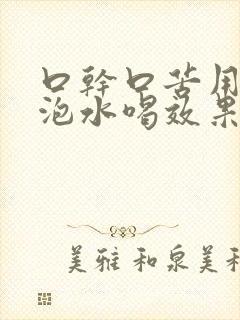 口幹口苦用
泡水喝效果
美雅和泉美和